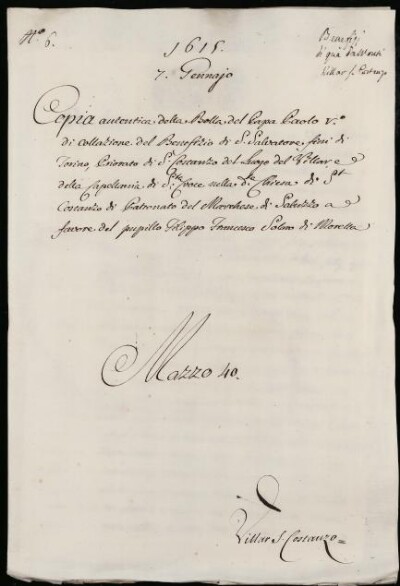 N.° 6.
Benefizj
di quà da Monti
Villar S. Costanzo
1615.
7. Gennajo
Copia autentica della Bolla del Papa Paolo V.°
di collazione del Benefizio di S. Salvatore fini di
Torino, Priorato di S.t Costanzo del Luogo del Villar e
della Capellania di S.ta Croce nella d.a Chiesa di S.t
Costanzo di Patronato del Marchese di Saluzzo a
favore del pupillo Filippo Francesco Solaro di Moretta
Mazzo 40.
Villar S. Costanzo=